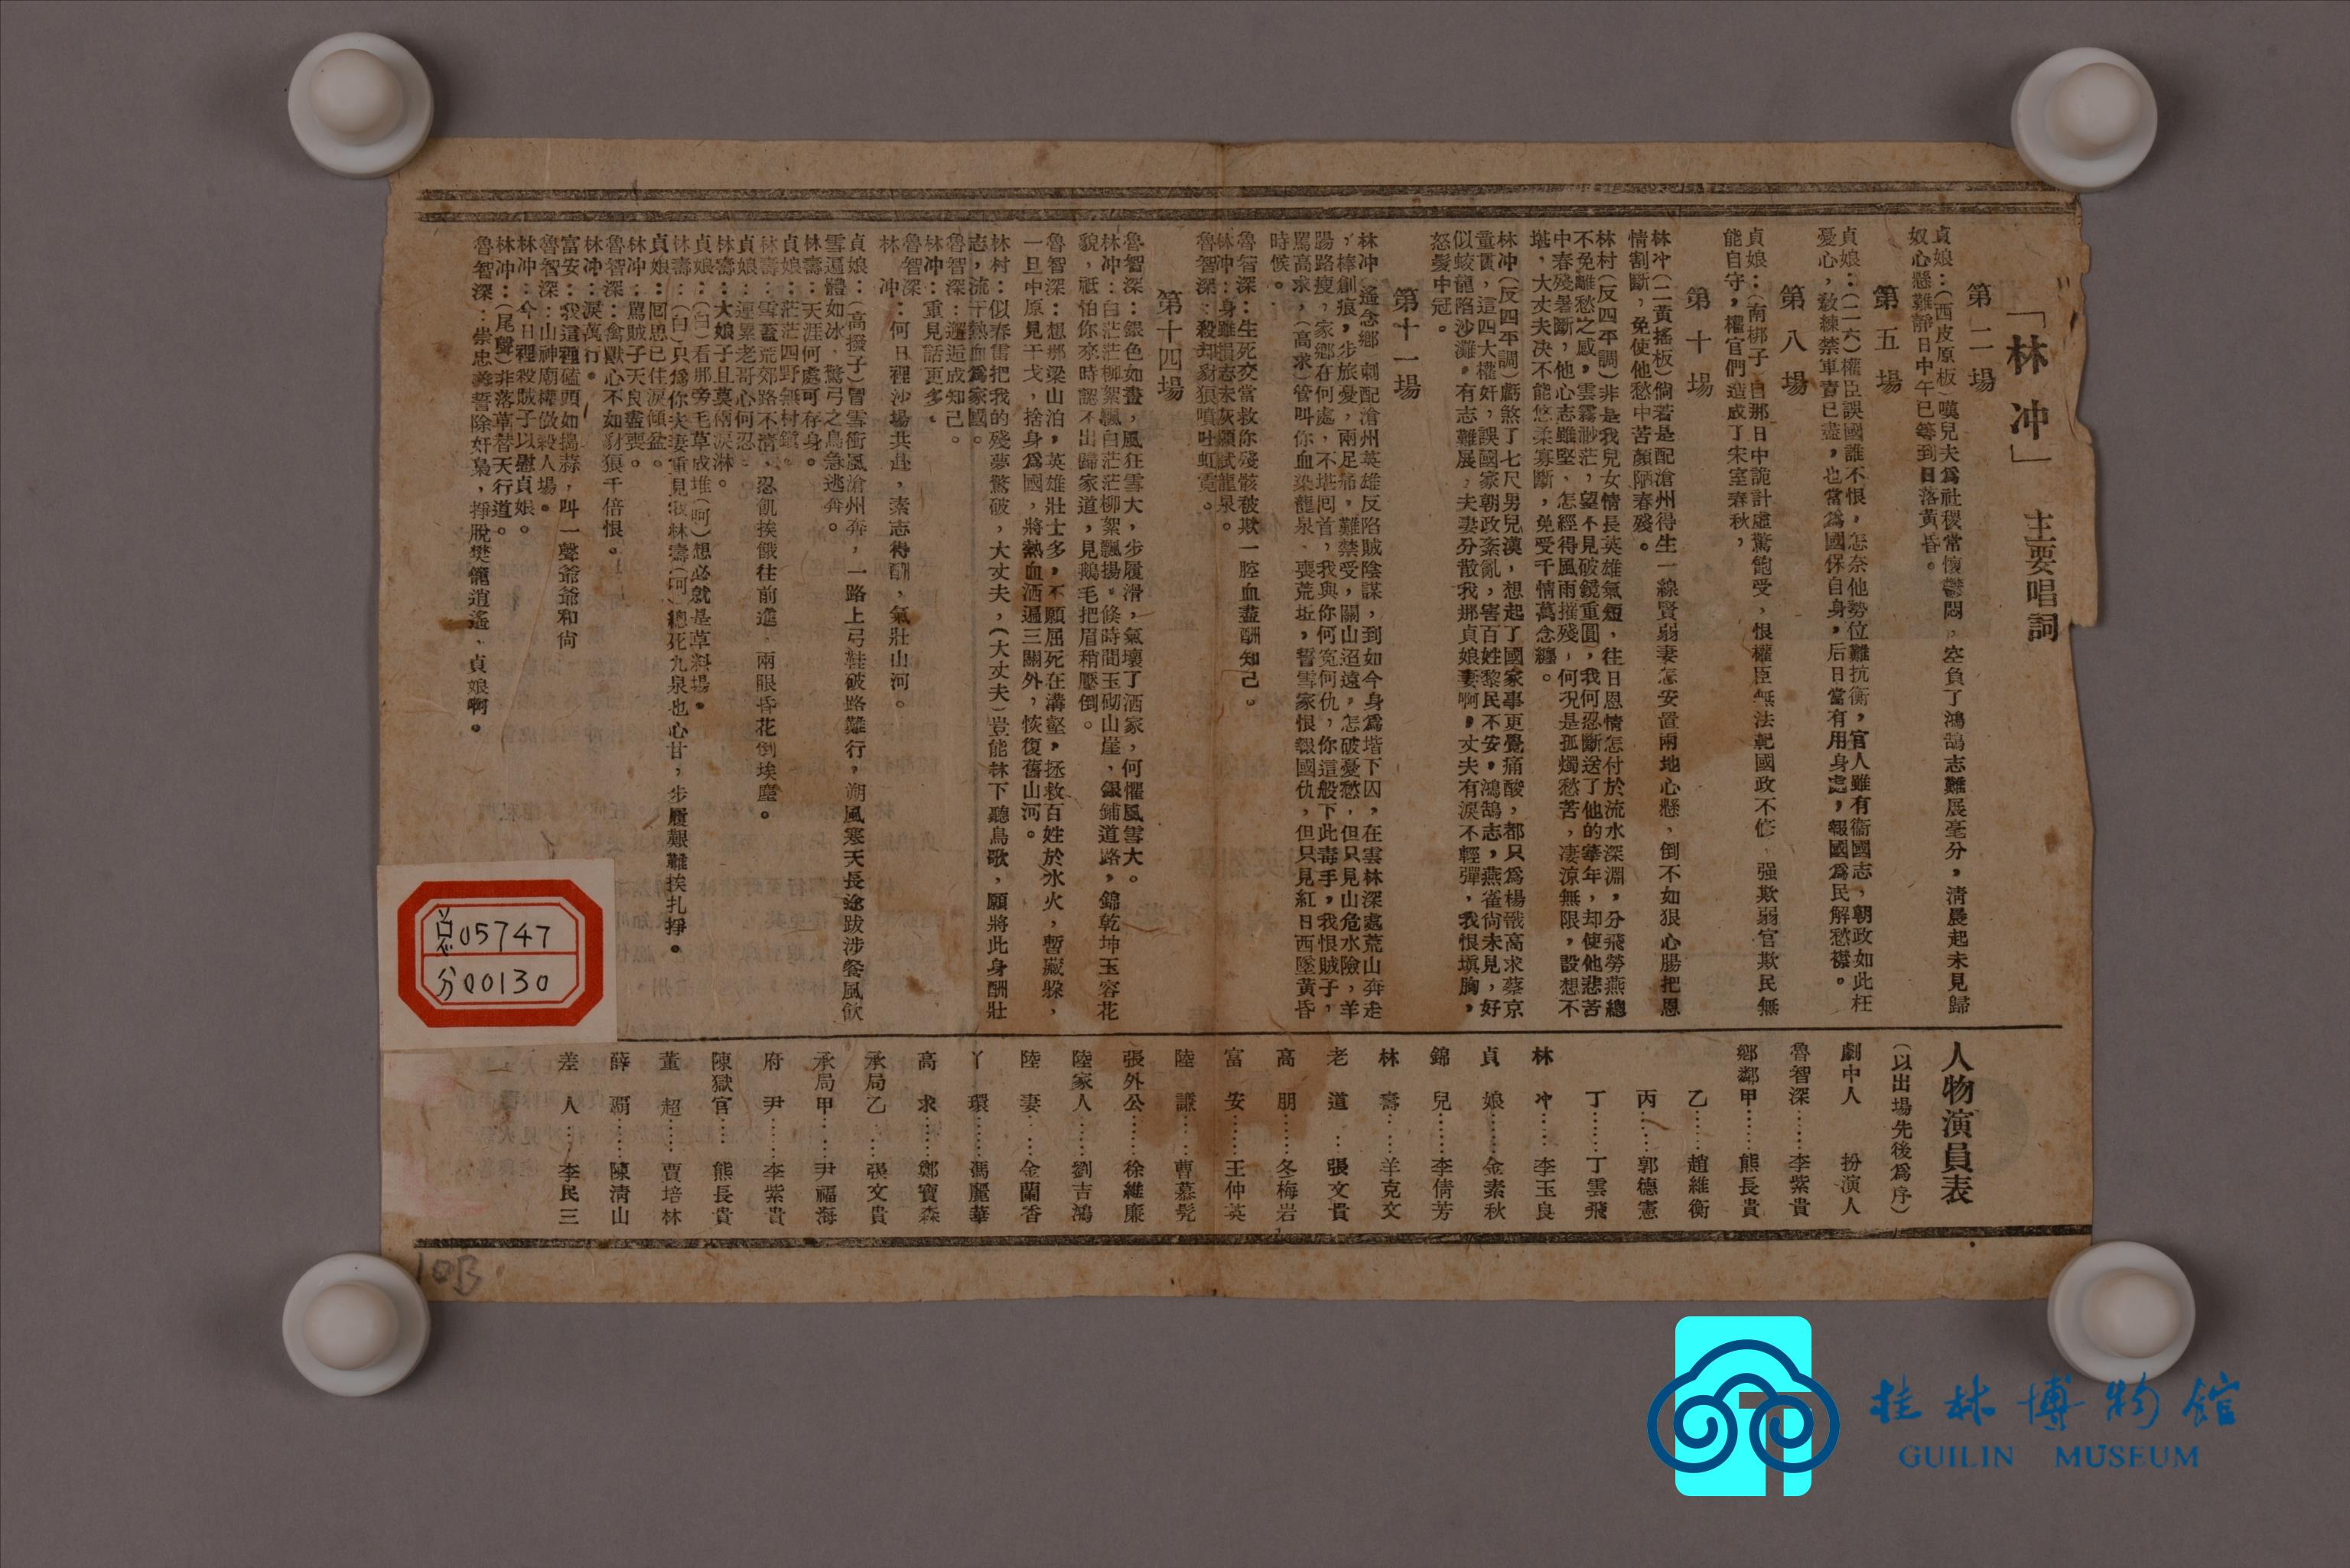 「林冲」 主要唱詞
第二場
貞娘：(西皮原板)嘆兒夫爲社稷常懷鬱悶，空負了鴻鵠志難展毫分，淸晨起未見歸
奴心懸難靜日中午已等到日落黃昏。
第五場
貞娘：(二六)權臣誤國誰不恨，怎奈他勢位難抗衡，官人雖有衞國志，朝政如此枉
憂心，敎練禁軍責已盡，也當爲國保自身，后日當有用身處，報國爲民解愁襟。
第八場
貞娘：(南梆子)自那日中詭計虛驚飽受，恨權臣無法紀國政不修，强欺弱官欺民無
能自守，權官們造成了宋室春秋，
第十場
林冲(二黃搖板)倘若是配滄州得生一線賢弱妻怎安置兩地心懸，倒不如狠心腸把恩
情割斷，免使他愁中苦顏陋春殘。
林村(反四平調)非是我兒女情長英雄氣短，往日恩情怎付於流水深淵，分飛勞燕總
不免離愁之感，雲霧渺茫，望不見破鏡重圓，我何忍斷送了他的華年，却使他悲苦
中春殘暑斷，他心志雖堅，怎經得風雨摧殘，何况是孤燭愁苦，凄涼無限，設想不
堪，大丈夫决不能悠柔寡斷，免受千情萬念纏。
林冲(反四平調)虧煞了七尺男兒漢，想起了國家事更覺痛酸，都只爲楊戩高求蔡京
童貫，這四大權奸，誤國家朝政紊亂，害百姓黎民不安，鴻鵠志，燕雀尙未見，好
似蛟龍陷沙灘，有志難展，夫妻分散我那貞娘妻啊，丈夫有淚不輕彈，我恨塡胸，
怒髮中冠。
第十一場
林冲(遙念鄉)刺配滄州英雄反陷賊陰謀，到如今身爲堦下囚，在雲林深處荒山奔走
，棒創痕，步旅憂，兩足痛，難禁受，關山迢遠，怎破憂愁，但只見山危水險，羊
腸路瘦，家鄉在何處，不堪囘首，我與你何寃何仇，你這般下此毒手，我恨賊子，
罵高求，(高求)管叫你血染龍泉，喪荒坵，誓雪家恨報國仇，但只見紅日西墜黃昏
時侯。
魯智深：生死交當救你殘骸被欺一腔血盡酬知己。
林冲：身雖損志未灰願試龍泉。
魯智深：殺却豺狼噴吐虹霓。
第十四場
魯智深：銀色如畫，風狂雪大，步履滑，氣壞了洒家，何懼風雪大。
林冲：白茫茫柳絮飄白茫茫柳絮飄揚，倏時間玉砌山崖，銀鋪道路，錦乾坤玉容花
貌，祗怕你來時認不出歸家道，見鵝毛把眉稍壓倒。
魯智深：想那梁山泊，英雄壯士多，不願屈死在溝壑，拯救百姓於水火，暫藏躲，
一旦中原見干戈，捨身爲國，將熱血洒遍三關外，恢復舊山河。
林村：似春雷把我的殘夢驚破，大丈夫，(大丈夫)豈能林下聽鳥歌，願將此身酬壯
志，流干熱血爲家國。
魯智深：邂逅成知己。
林冲：重見話更多。
魯智深
林冲：何日裡沙場共赴，素志得酬，氣壯山河。
貞娘：(高撥子)冒雪衝風滄州奔，一路上弓鞋破路難行，朔風寒天長途跋涉餐風飮
雪逼體如冰，驚弓之鳥急逃奔。
林壽：天涯何處可存身。
貞娘：茫茫四野無村鎭。
林壽：雪蓋荒郊路不淸，忍飢挨餓往前進，兩眼昏花倒埃塵。
貞娘：連累老哥心何忍
林壽：大娘子且莫兩淚淋。
貞娘：(白)看那旁毛草成堆(呵)想必就是草料場。
林壽：(白)只爲你夫妻重見我林壽(呵)總死九泉也心甘，步履艱難挨扎掙。
貞娘：囘思已往淚傾盆。
林冲：罵賊子天良盡喪。
魯智深：禽獸心不如豺狼千倍恨。
林冲：淚萬行。
富安：我這裡磕頭如搗蒜，叫一聲爺爺和尙
魯智深：山神廟權做殺人場。
林冲：今日裡殺賊子以慰貞娘。
林冲：(尾聲)非落草替天行道。
魯智深：崇忠義誓除奸梟，掙脫樊籠逍遙，貞娘啊。
人物演員表
(以出場先後爲序)
劇中人 扮演人
魯智深……李紫貴
鄕鄰甲……熊長貴
乙……趙維衡
丙……郭德憲
丁……丁雲飛
林冲……李玉良
貞娘……金素秋
錦兒……李倩芳
林壽……羊克文
老道……張文貴
高朋……冬梅岩
富安……王仲英
陸謙……曹慕髡
張外公……徐維廉
陸家人……劉吉鴻
陸妻……金蘭香
丫環……馮麗華
高求……鄭寶森
承局乙……張文貴
承局甲……尹福海
府尹……李紫貴
陳獄官……熊長貴
董超……賈培林
薛覇……陳淸山
差人……李民三
总05747
分00130
10B
桂林博物館
GUILIN MUSEUM